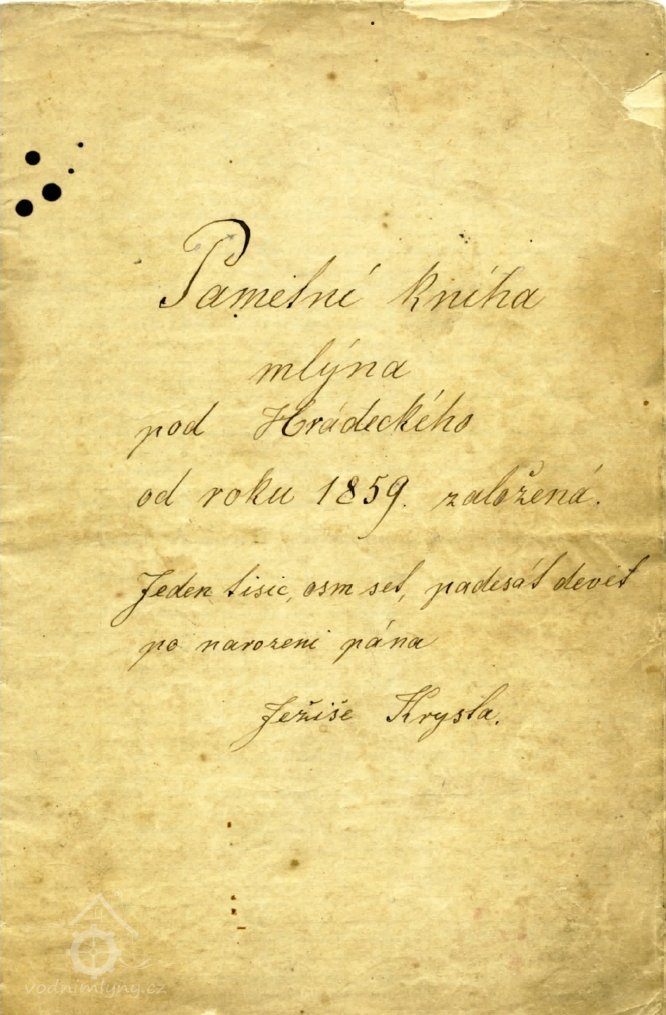 Pametní kniha
mlýna
pod Hrádeckého
od roku 1859. založená.
Jeden tisic, osm set, padesát devět
po narozeni pána
Ježiše Krysta.
vodnimlyny.cz